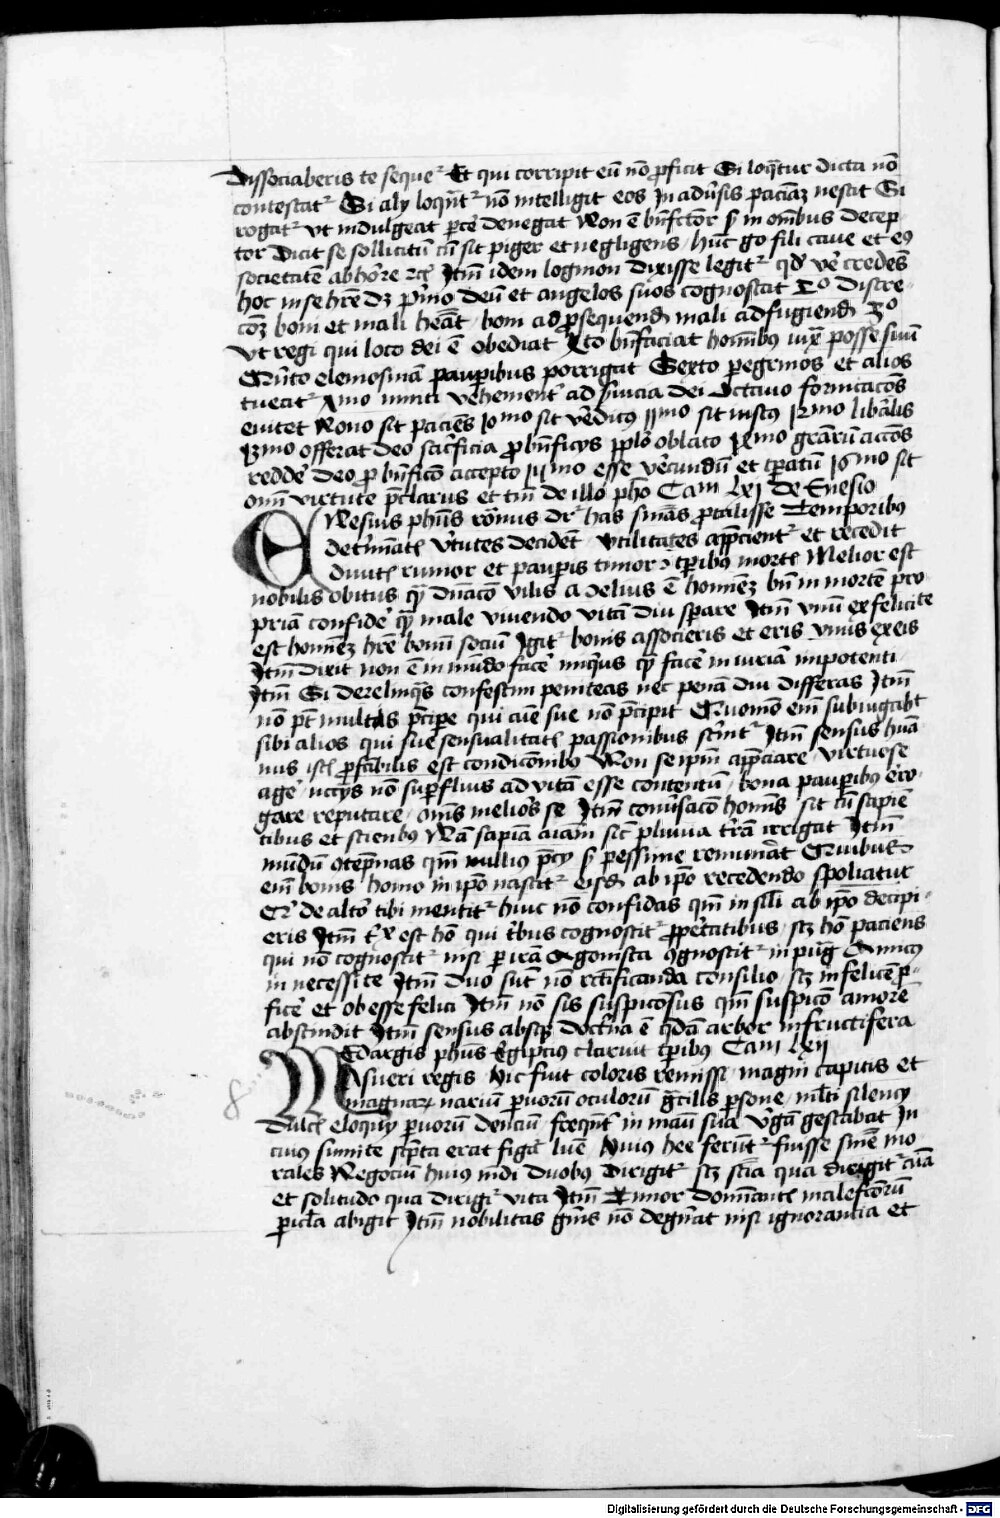 dissociaberis te sequer Et qui corripit eū nō ꝓficit Si loq̄tur dicta nō
contestat᷑ Si alij loqūt᷑ nō intelligit eos In adūsis paciāꝫ nescit Si
rogat᷑ ut indulgeat parcē denegat Non ē bn̄fctor sꝫ in om̄ibus decep
tor Dicit se sollicitū cū sit piger et negligens / hūc go fili caue et eꝰ
societatē abhorre ⁊cꝫ Itm̄ idem logmon dixisse legit᷑ qd̄ ve᷑ credēs
hoc in se hr̄e dꝫ p᷑mo deū et angelos suos cognoscat 2o discre
cōꝫ boni et mali heāt / boni ad ꝓsequend mali ad fugiend 3o
vt regi qui loco dei ē obediat 4to bn̄faciat hoīnibꝰ iux̄ posse suū
Quīto elemosinā paupibus porrigat Sexto pegrinos et alios
tueat᷑ 7mo mittit vehement᷑ ad suicia dei Octauo fornicacōs
euitet Nono sit paciēs 10mo sit ve᷑dicꝰ 11mo sit iustꝰ 12mo libalis
13mo offerat deo sacrificia ꝓ bn̄ficijs pplō oblato 14mo grāꝝ accōs
redde᷑ deo ꝓ bn̄ficō accepto 15mo esse ve᷑cundū et tpatū 16mo sit
omī virtute p̄clarus et tm̄ de illo pho Cam lxj de Enesio
ENesius phūs rōnus dr̄ has sm̄as ꝓtulisse Temporibus
det᷑minatꝫ v᷑tutes decidēt / vtilitates app̄cient᷑ et recedit
diuitꝫ rumor et paupis timor ī tpibꝰ mortꝫ Melior est
nobilis obitus qꝫ dn̄acō vilis Melius ē hominēꝫ bn̄ in mortē pro
priā confide᷑ qꝫ male viuendo vitā diu sperare Itm̄ vnū ex felicite
est hominēꝫ hr̄e bonū sociū Igit᷑ bonis associeris et eris vnus ex eis
Itm̄ dixit non ē in mūdo face᷑ iniqꝰus qꝫ face᷑ iniuriā impotenti
Itm̄ Si derelinq̄s confestim peniteas nec penā diu differas Itm̄
nō pt̄ multis p̄cipe qui aīe sue nō p̄cipit Quomō eīm subiugabt
sibi alios qui sue sensualitatꝫ passionibus seruit᷑ Itm̄ sensus huā
nus
age᷑ / nccijs nō supfluis ad vitā esse contentū / bona paupibus e᷑ro
gare / reputare / om̄s meliores se Itm̄ conūsacō hoīnis sit cū sapiē
tibus et scienbꝰ Nā sapīa aīam sic pluuia t᷑rā irrigat Itm̄
mūdū ꝯtēpnas qm̄ nulliꝰ p̄cij sꝫ pessime remunāt Quibus
eīm bonis homo in ip̄o nascit᷑ eisdē ab ip̄o recedendo spoliatur
Qr̄ de alto tibi mentit᷑ huic nō confidas qm̄ in sili ab ip̄o decipi
eris Itm̄ t᷑x est hō qui t᷑bus cognoscit᷑ ꝓpe᷑tatibus / scꝫ hō paciens
qui nō cognoscit᷑ nisi p irā Agonista ꝯgnoscit᷑ in pug Amicꝰ
in necessite Itm̄ duo sūt nō rctificanda consilio / scꝫ infelicē p
fice᷑ et obesse felici Itm̄ nō sis suspicosus qm̄ suspicō amorē
abscindit Itm̄ sensus absqꝫ doct᷑na ē q̄dā arbor infructifera
MEdargis phūs Egipcius claruit tpibus Cam lxij
Asueri regis Hic fuit coloris remissi / magni capitis et
magnaꝝ nariū paruorū oculorū gr̄cilis persone / mlti silencij
dulcꝫ eloquij paruorū denciū / freq̄nt᷑ in manū suā v᷑gā gestabat In
cuius sumite scpta erat figa lune Huius hee ferūt᷑ fuisse smē mo
rales Negociū huius mdi duobꝰ dirigit᷑ scꝫ scīa qua dirigit᷑ aīa
et solitudo qua dirigit᷑ vita Itm̄ Timor domināntꝫ malefcōrū
picla abigit Itm̄ nobilitas gn̄is nō degn̄at nisi ignorancia et
8
Digitalisierung gefördert durch die Deutsche Forschungsgemeinschaft - DFG